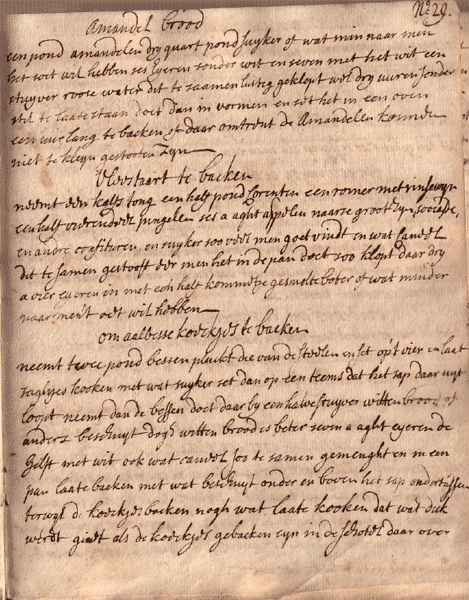 No 29.
Amandel brood
een pond amandelen dry quart pond suyker of wat min naar men
het soet wil hebben ses Eyeren sonder wit en seven met het wit een
stuyver roose water dit te saamen lustig geklopt wel dry uuren sonder
stil te laate staan doet dan in vormen en set het in een oven
een uur lang te backen of daar omtrent de Amandelen konnen
niet te kleyn gestooten zyn
Vleestaart te backen
neemt een kalfs tong een half pond Corenten een romer met rinsewyn
een half vierendeel pingelen ses a aght appelen naar se groot zyn, soccade,
en andre confituren, en suyker soo veel men goet vindt en wat Caneel
dit te samen gestooft eer men het in de pan doet soo klopt daar dry
a vier eyeren in met een half kommetje gesmolte boter of wat minder
naar men't vet wil hebben
om aalbesse koeckjes te backen
neemt twee pond bessen pluckt die van de steelen en set op't vier en laat
sagtjes kooken met wat suyker set dan op een teems dat het sap daar uyt
loopt neemt dan de bessen doet daar by een halve stuyver witten brood of
anders beschuyt dogh witten brood is beter seven a aght eyeren de
helft met wit ook wat caneel soo te samen gemenght en in een
pan laate backen met wat beschuyt onder en boven het sap ondertussen
terwyl de koeckjes backen nogh wat laate kooken dat wat dick
werdt giedt als de koeckjes gebacken zyn in de schotel daar over